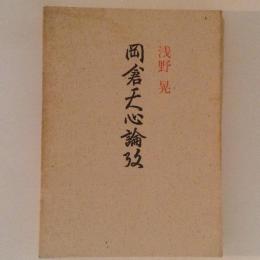 浅野晃
岡倉天心論攷